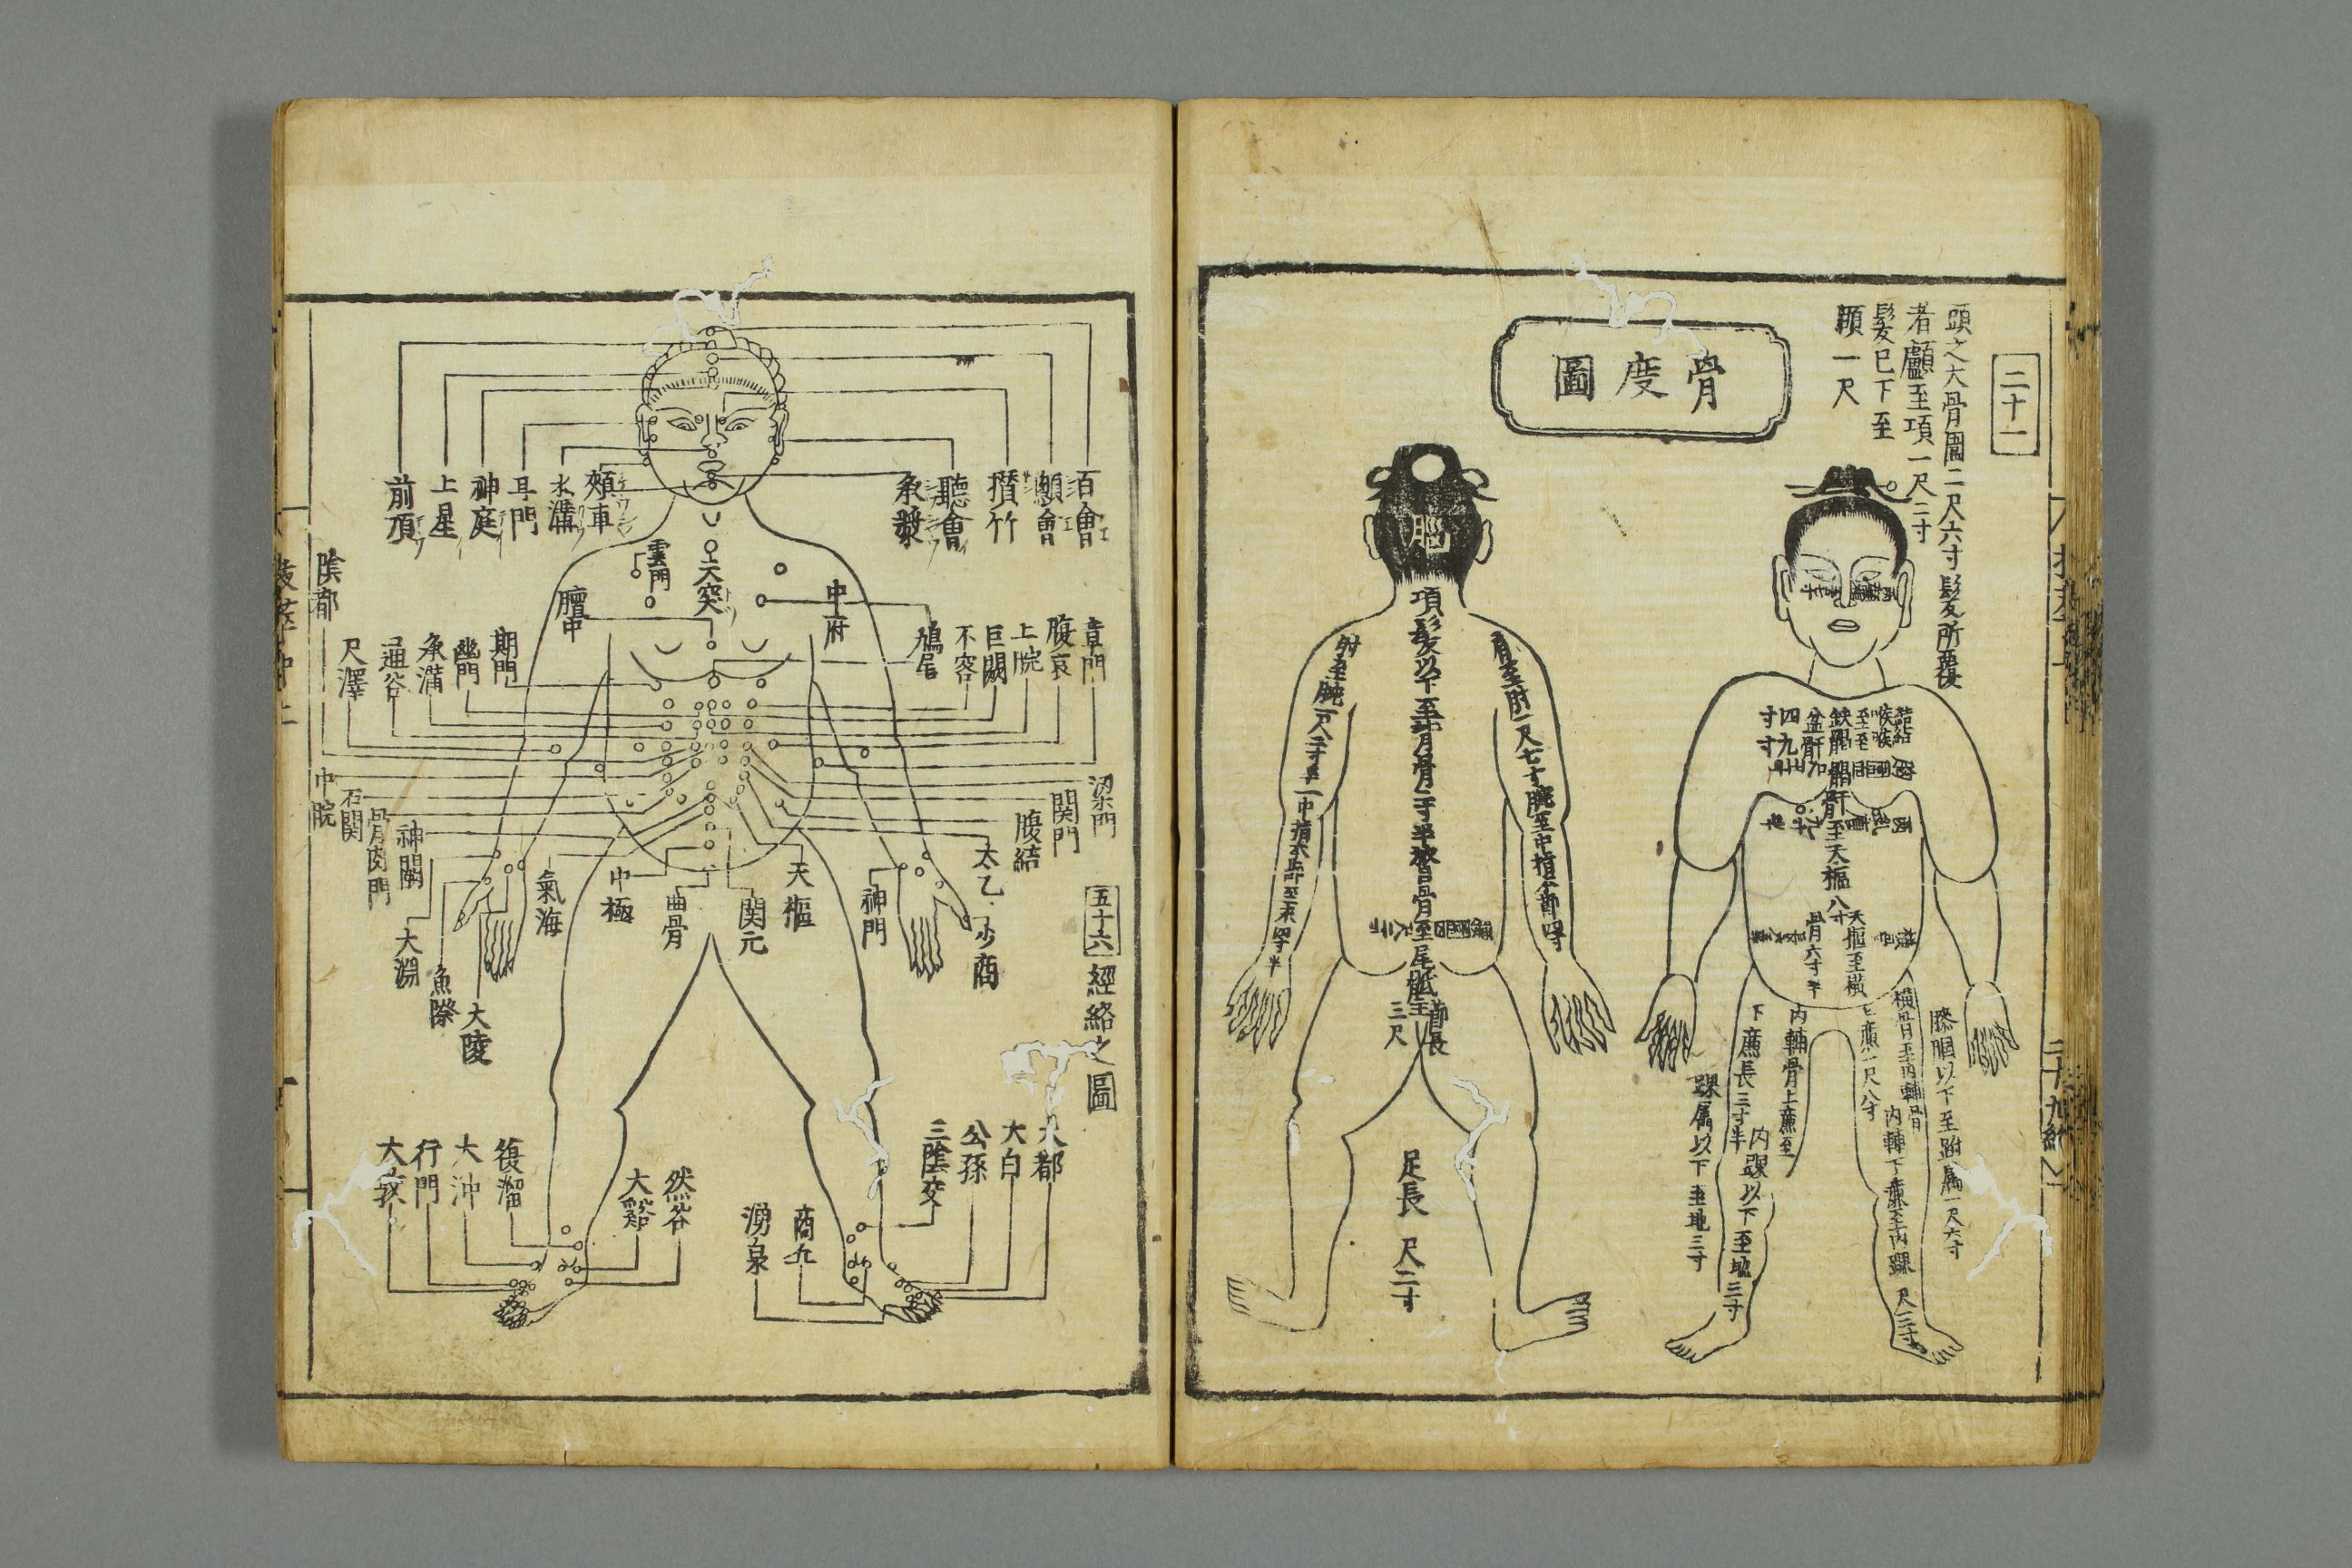 二十一
頭之大骨圍二尺六寸髮所覆
者顱至項一尺二寸
髮已下至
頤一尺
骨度圖
髑骬至天樞八寸
天樞至橫
骨六寸半
橫骨至內輔骨
上廉一尺八寸
內輔下廉至內踝
尺三寸
膝膕以下至跗屬一尺六寸
內輔骨上廉至
下廉長三寸半
內踝以下至地三寸
踝屬以下至地三寸
腦
項髮以下至背骨二寸半
膂骨至尾骶
三尺
肩至肘一尺七寸
腕至中指本節四寸
肘至腕一尺二寸半
足長
尺二寸
五十六
經絡之圖
百會
顖會
攅竹
聽會
承漿
頰車
水溝
耳門
神庭
上星
前頂
雲門
天突
中府
膻中
章門
腹哀
上脘
巨闕
不容
鳩尾
期門
幽門
承滿
通谷
尺澤
陰都
梁門
関門
腹結
太乙
少商
中脘
石関
骨肉門
神闕
天樞
神門
関元
曲骨
中極
氣海
大淵
魚際
大陵
大都
大白
公孫
三陰交
商丘
湧泉
然谷
大谿
復溜
大沖
行門
大敦